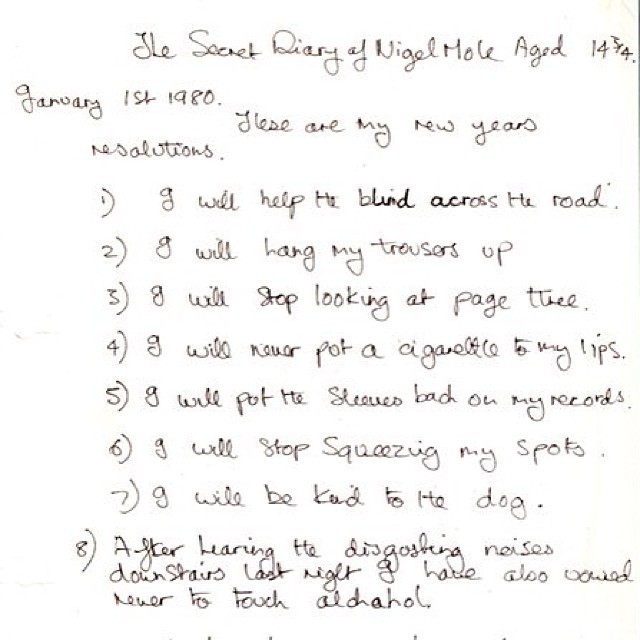 The Secret Diary of Nigel Mole Aged 14¾.
January 1st 1980.
These are my new years
resolutions.
1) I will help the blind across the road.
2) I will hang my trousers up
3) I will stop looking at page three.
4) I will never put a cigarette to my lips.
5) I will put the sleeves back on my records.
6) I will stop squeezing my spots.
7) I will be kind to the dog.
8) After hearing the disgosting noises
downstairs last night I have also vowed
never to touch alchahol.